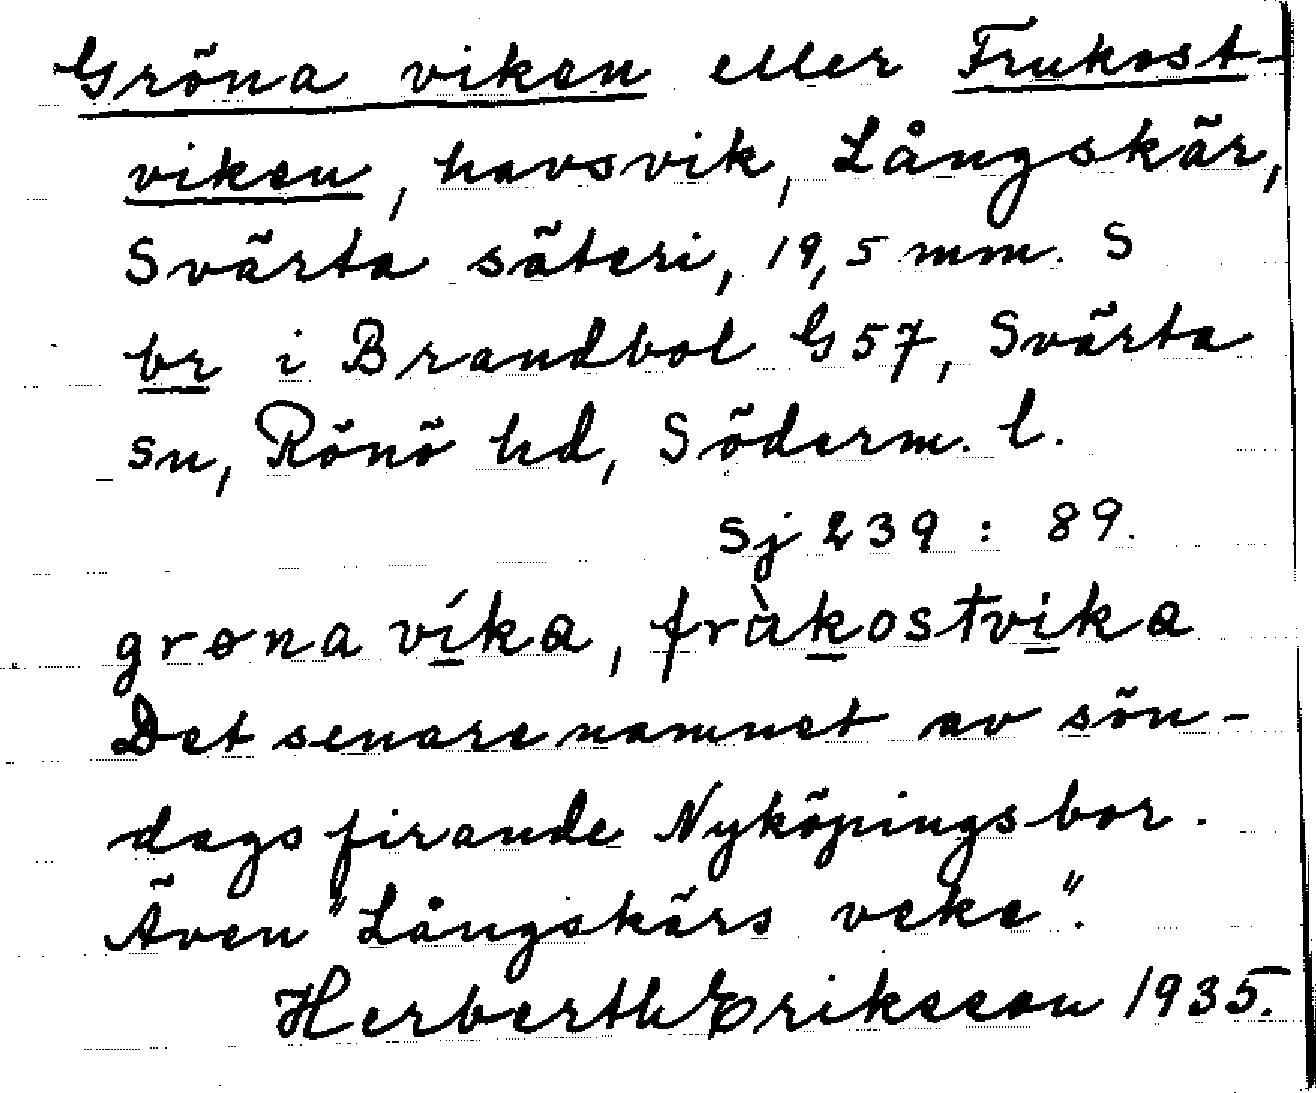 Gröna viken eller Frukost-
viken, havsvik, Långskär,
Svärta säteri, 19,5 mm. S
br i Brandbol G57, Svärta
sn, Rönö hd, Söderm. l.
Sj 239 : 89.
grøna víka, fràkostvika
Det senare namnet av sön-
dagsfirande Nyköpingsbor.
Även "Långskärs veke".
Herberth Eriksson 1935.